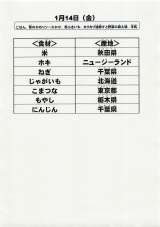 1月14日（金）
＜食材＞ ＜産地＞
米 秋田県
ホキ ニュージーランド
ねぎ 千葉県
じゃがいも 北海道
こまつな 東京都
もやし 栃木県
にんじん 千葉県